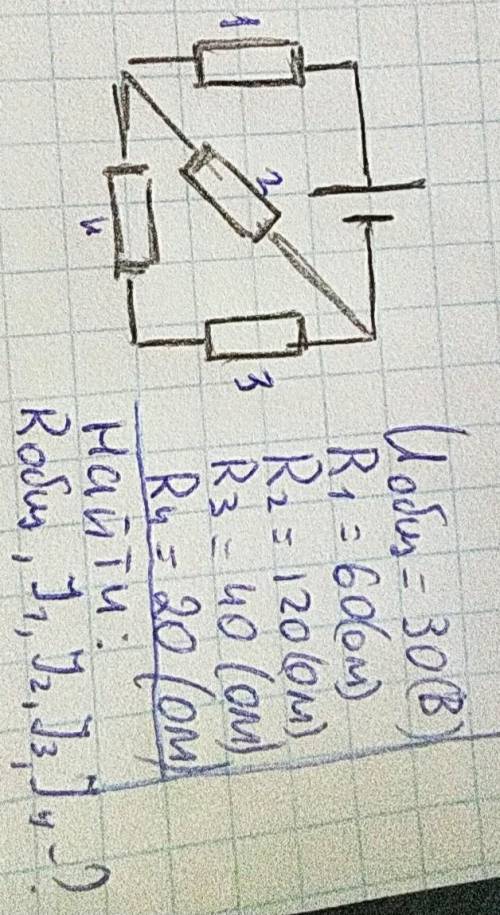 1
2
3
4
Uобщ = 30(В)
R1 = 60(ом)
R2 = 120(ом)
R3 = 40 (ом)
R4 = 20 (ом)
Найти:
Rобщ, J1, J2, J3, J4 -?